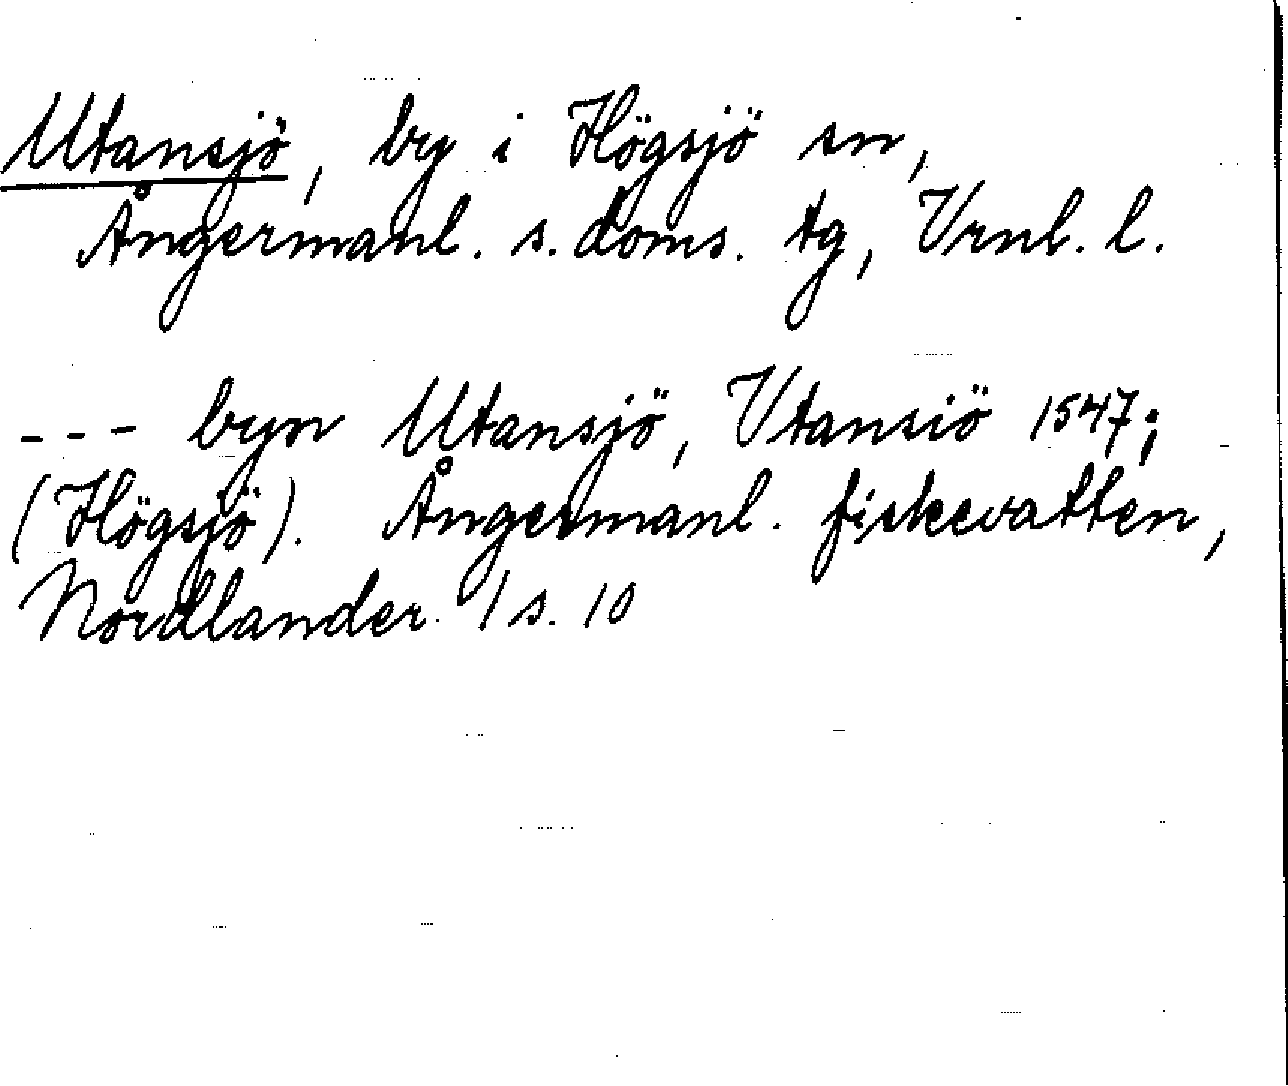 Utansjö, by i Högsjö sn,
Ångermanl. s. doms. tg, Vrnl. l.
--- byn Utansjö, Vtansiö 1547;
(Högsjö). Ångermanl. fiskevatten,
Nordlander. 1 s. 10